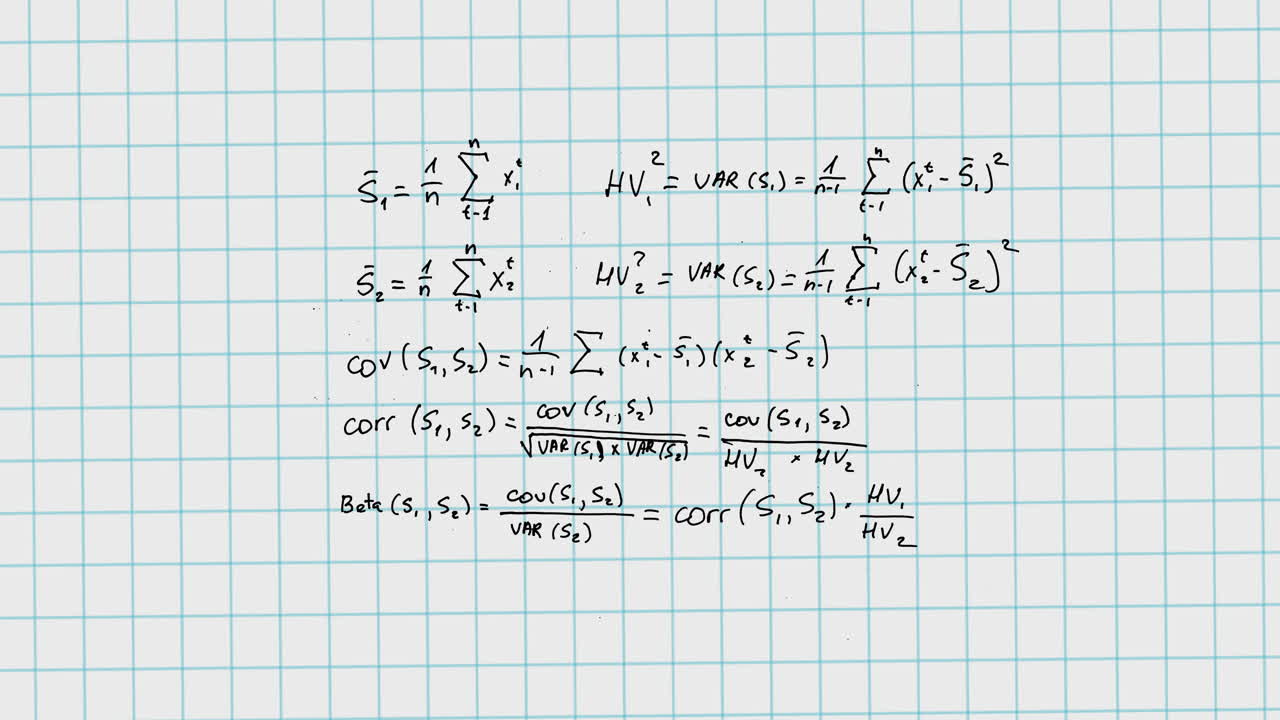 S̄₁ = 1/n ∑ⁿₜ₋₁ x₁ᵗ HV₁² = VAR(S₁) = 1/n-1 ∑ⁿₜ₋₁ (x₁ᵗ - S̄₁)²
S̄₂ = 1/n ∑ⁿₜ₋₁ x₂ᵗ HV₂? = VAR(S₂) = 1/n-1 ∑ⁿₜ₋₁ (x₂ᵗ - S̄₂)²
cov(S₁,S₂) = 1/n-1 ∑ (x₁ᵗ - S̄₁)(x₂ᵗ - S̄₂)
corr(S₁,S₂) = cov(S₁,S₂)/√VAR(S₁) x VAR(S₂) = cov(S₁,S₂)/HV₂ x HV₂
Beta(S₁,S₂) = cov(S₁,S₂)/VAR(S₂) = corr(S₁,S₂) · HV₁/HV₂